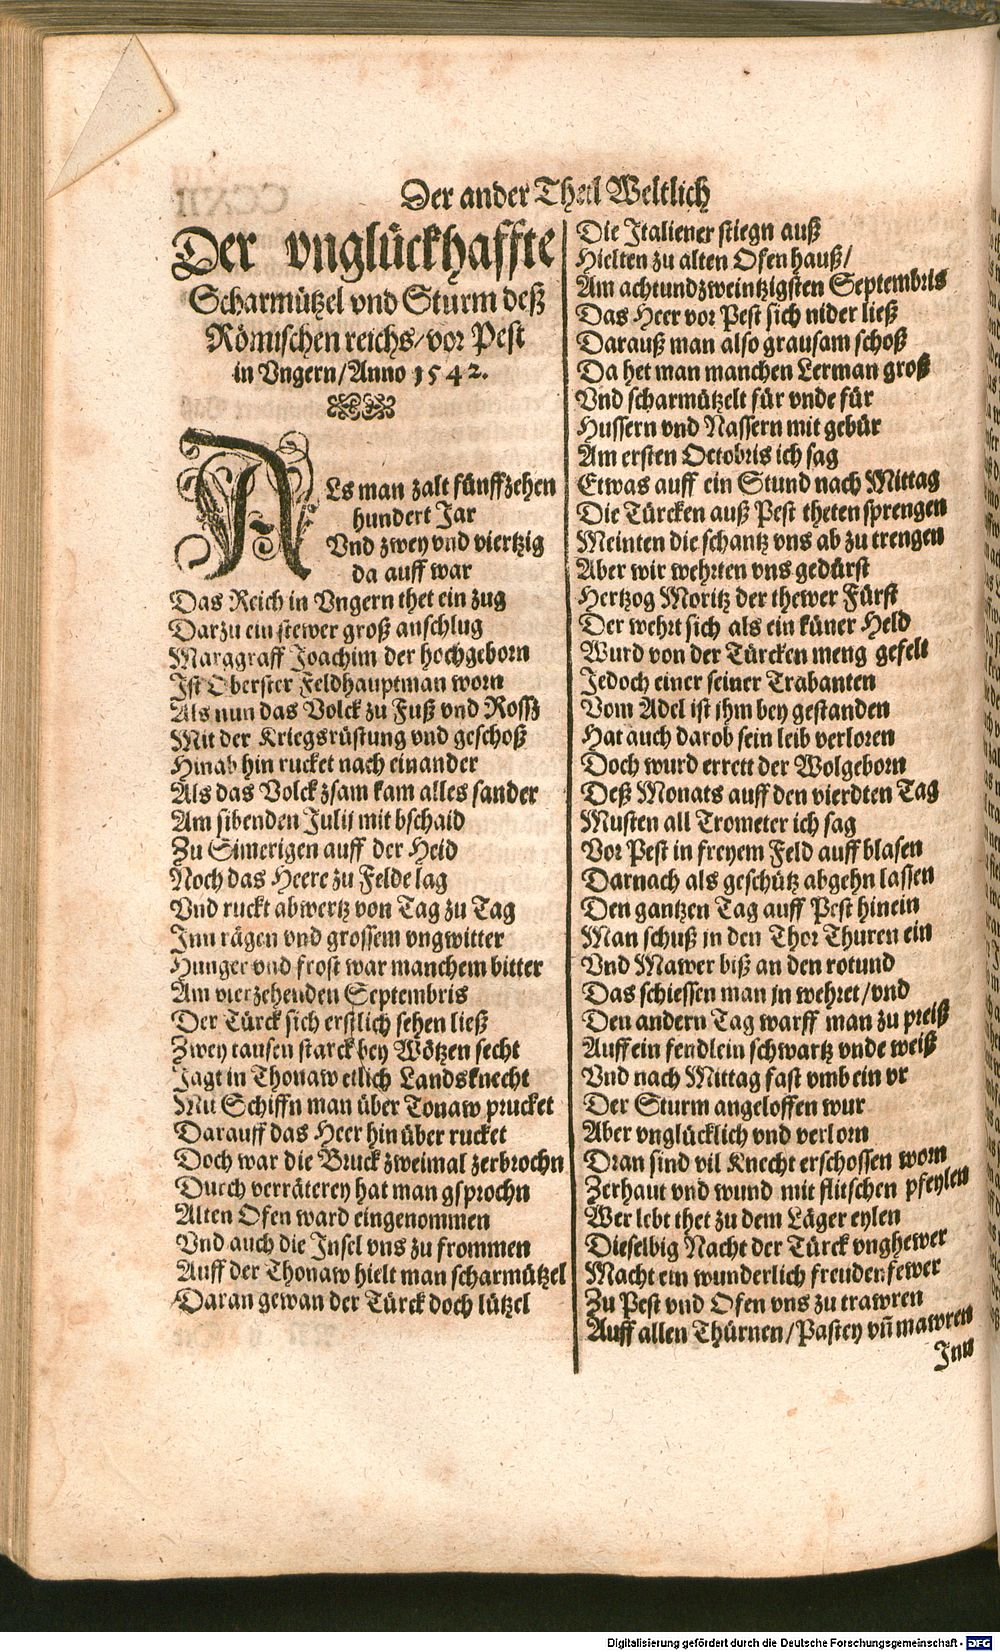 Der ander Theil Weltlich
Der vnglückhaffte
Scharmützel vnd Sturm deß
Römischen reichs/vor Pest
in Vngern/Anno 1542.
ALs man zalt fünffzehen
hundert Jar
Vnd zwey vnd viertzig
da auff war
Das Reich in Vngern thet ein zug
Darzu ein stewer groß anschlug
Marggraff Joachim der hochgeborn
Ist Oberster Feldhauptman worn
Als nun das Volck zu Fuß vnd Rossz
Mit der Kriegsrüstung vnd geschoß
Hinab hin rucket nach einander
Als das Volck zsam kam alles sander
Am sibenden Julij mit bschaid
Zu Simerigen auff der Heid
Noch das Heere zu Felde lag
Vnd ruckt abwertz von Tag zu Tag
Inn rägen vnd grossem vngwitter
Hunger vnd frost war manchem bitter
Am vierzehenden Septembris
Der Türck sich erstlich sehen ließ
Zwey tausen starck bey Wötzen secht
Jagt in Thonaw etlich Landsknecht
Mit Schiffn man über Tonaw prucket
Darauff das Heer hin über rucket
Doch war die Bruck zweimal zerbrochn
Durch verräterey hat man gsprochn
Alten Ofen ward eingenommen
Vnd auch die Insel vns zu frommen
Auff der Thonaw hielt man scharmützel
Daran gewan der Türck doch lützel
Die Italiener stiegn auß
Hielten zu alten Ofen hauß/
Am achtundzweintzigsten Septembris
Das Heer vor Pest sich nider ließ
Darauß man also grausam schoß
Da het man manchen Lerman groß
Vnd scharmützelt für vnde für
Hussern vnd Nassern mit gebür
Am ersten Octobris ich sag
Etwas auff ein Stund nach Mittag
Die Türcken auß Pest theten sprengen
Meinten die schantz vns ab zu trengen
Aber wir wehrten vns gedürst
Hertzog Moritz der thewer Fürst
Der wehrt sich als ein küner Held
Wurd von der Türcken meng gefelt
Jedoch einer seiner Trabanten
Vom Adel ist ihm bey gestanden
Hat auch darob sein leib verloren
Doch wurd errett der Wolgeborn
Deß Monats auff den vierdten Tag
Musten all Trometer ich sag
Vor Pest in freyem Feld auff blasen
Darnach als geschütz abgehn lassen
Den gantzen Tag auff Pest hinein
Man schuß in den Thor Thuren ein
Vnd Mawer biß an den rotund
Das schiessen man in wehret/vnd
Den andern Tag warff man zu preiß
Auff ein fendlein schwartz vnde weiß
Vnd nach Mittag fast vmb ein vr
Der Sturm angeloffen wur
Aber vnglücklich vnd verlorn
Dran sind vil Knecht erschossen worn
Zerhaut vnd wund mit flitschen pfeylen
Wer lebt thet zu dem Läger eylen
Dieselbig Nacht der Türck vnghewer
Macht ein wunderlich freudenfewer
Zu Pest vnd Ofen vns zu trawren
Auff allen Thürnen/Pastey vn̄ mawren
Inn
Digitalisierung gefördert durch die Deutsche Forschungsgemeinschaft - DFG